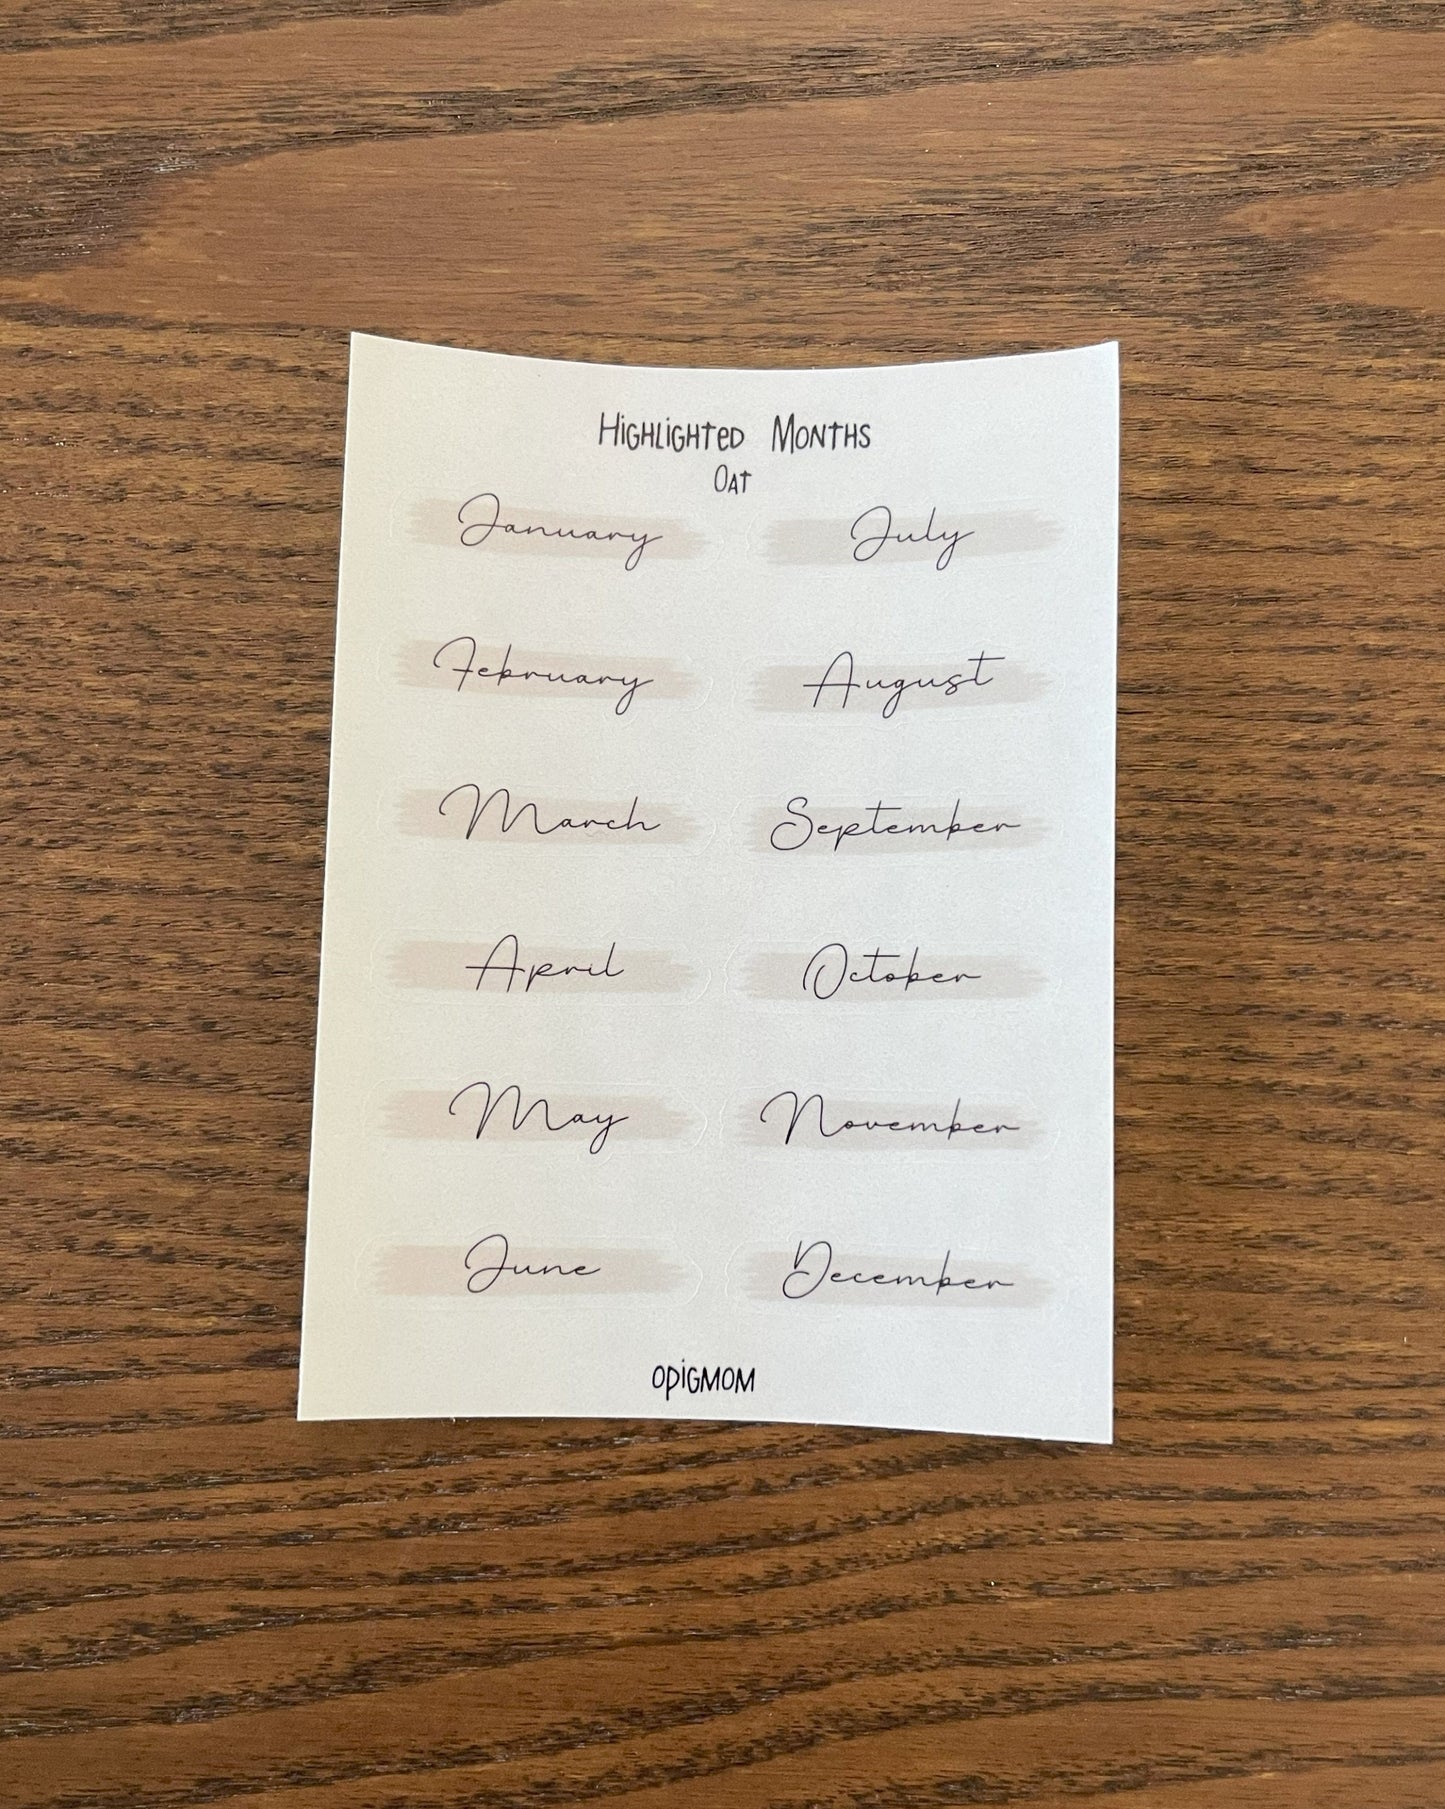 Highlighted Months
Oat
January
February
March
April
May
June
July
August
September
October
November
December
opigmom